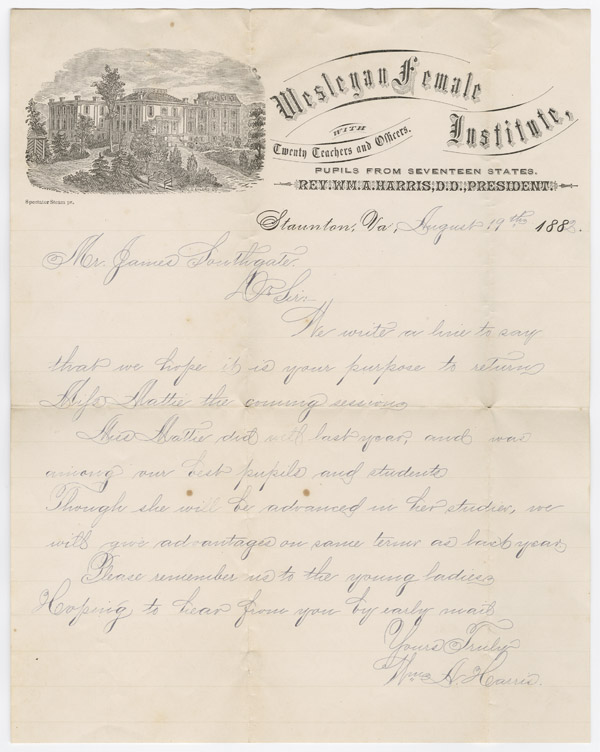 Wesleyan Female
Institute,
WITH
Twenty Teachers and Officers.
PUPILS FROM SEVENTEEN STATES.
REV. WM. A. HARRIS, D.D., PRESIDENT.
Spectator Steam pr.
Staunton, Va., August 19th 1882.
Mr. James Southgate
Dr Sir
We write a line to say
that we hope it is your purpose to return
Miss Mattie the coming session
Miss Mattie did well last year, and was
among our best pupils and students
Though she will be advanced in her studies, we
will give advantages on same terms as last year
Please remember us to the young ladies
Hoping to hear from you by early mail
Yours Truly
Wm A. Harris.